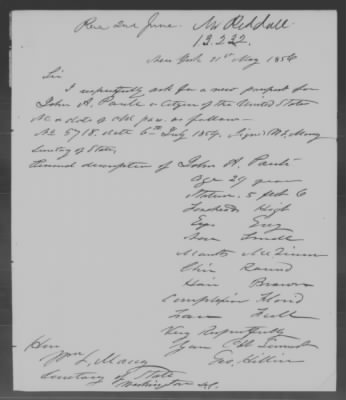 Rec 2nd June. Mr Riddall
13.232.
New York 31st May 1856
Sir
I respectfully ask for a new passport for
John A. Paulé a citizen of the United States
No & date of old pas. as follows—
No 5718. date 6th July 1854. Signed W. L. Marcy
Secretary of State,
Personal description of John A. Paulé
Age 29 years
Stature. 5 feet 6
Forehead High
Eyes Grey
Nose Small
Mouth Medium
Chin Round
Hair Brown
Complexion Florid
Face Full
Very Respectfully
Your Obt Servant
Geo.
Hon
Wm L. Marcy
Secretary of State
Washington